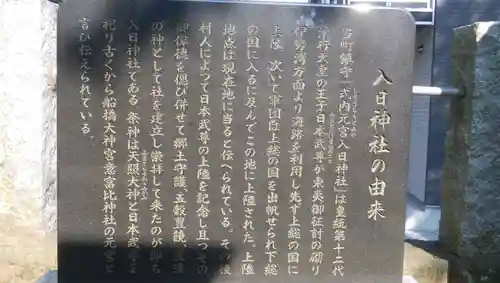 入日神社の由来
当町鎮守「式内元宮入日神社」は皇統第十二代
景行天皇の王子日本武尊が東夷御征討の砌り
伊勢湾方面より海路を利用し先ず上総の国に
上陸 次いで軍団は上総の国を出帆せられ下総
の国に入るに及んでこの地に上陸された。上陸
地点は現在地に当ると伝へられている。その後
村人によって日本武尊の上陸を記念し且つその
御偉徳を偲び併せて郷土守護、五穀豊饒、
の神として社を建立し崇拝して来たのが即ち
入日神社である 祭神は天照大神と日本武尊
祀り古くから船橋大神宮意富比神社の元宮と
言ひ伝えられている。